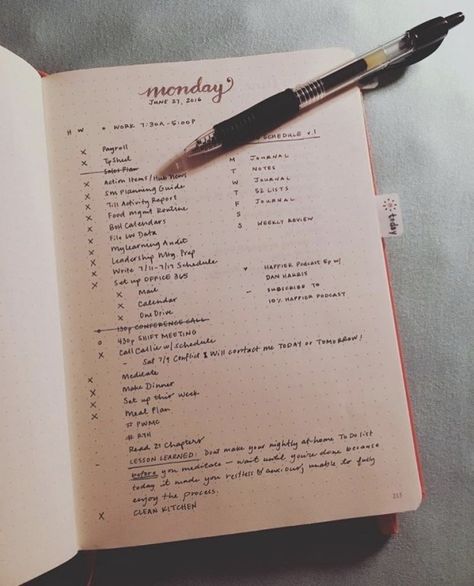 monday
JUNE 27, 2016
H W • WORK 7:30A-5:00P
x Payroll
x
Sales Plan
x Action Items/Hub News
x SM Planning Guide
x Till Activity Report
x Food Mgmt Routine
x BOH Calendars
x File LW Data
x Mylearning Audit
x Leadership Mtg. Prep
x Write 7/11-7/17 Schedule
x Set up OFFICE 365
x Mail
x Calendar
x OneDrive
130p CONFERENCE CALL
o 430p SHIFT MEETING
x Call Callie w/ schedule
– Sat 7/9 Conflict & Will contact me TODAY or TOMORROW!
x Meditate
x Make Dinner
x Set up this week
x Meal Plan
# PWMG
#
Read 21 Chapters
– LESSON LEARNED: Dont make your nightly at-home To Do list
before you meditate – wait until you're done because
today it made you restless & anxious, unable to fully
enjoy the process.
x CLEAN KITCHEN
SCHEDULE v.1
M JOURNAL
T NOTES
W JOURNAL
T 52 LISTS
F JOURNAL
S
S WEEKLY REVIEW
HAPPIER PODCAST EP W/
DAN HARRIS
– SUBSCRIBE TO
10% HAPPIER PODCAST
today